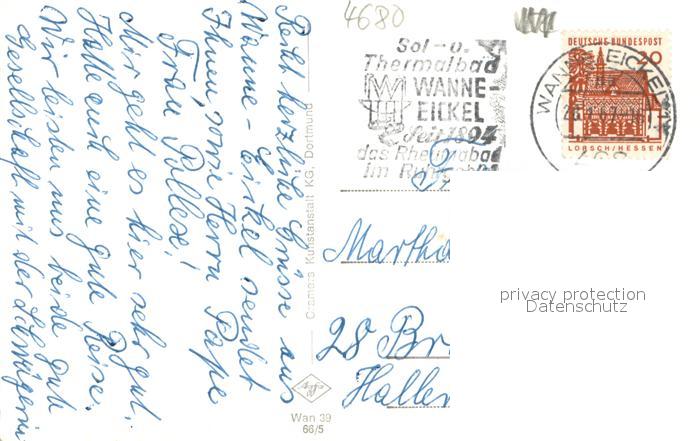 4680
Sol- u.
Thermalbad
WANNE-
EICKEL
Seit 1894
das Rheumabad
im
DEUTSCHE BUNDESPOST
20
LORSCH/HESSEN
WANNE-EICKEL
Recht herzliche Grüsse aus
Wanne-Eickel sendet
Ihnen, sowie Herrn Pape
Frau Pallese!
Mir geht es hier sehr gut.
Hatte auch eine gute Reise.
Wir leisten uns beide gut
Gesellschaft mit der Schwägerin
Cramers Kunstanstalt KG., Dortmund
Martha
28 Br
Haller
privacy protection
Datenschutz
Wan 39
66/5